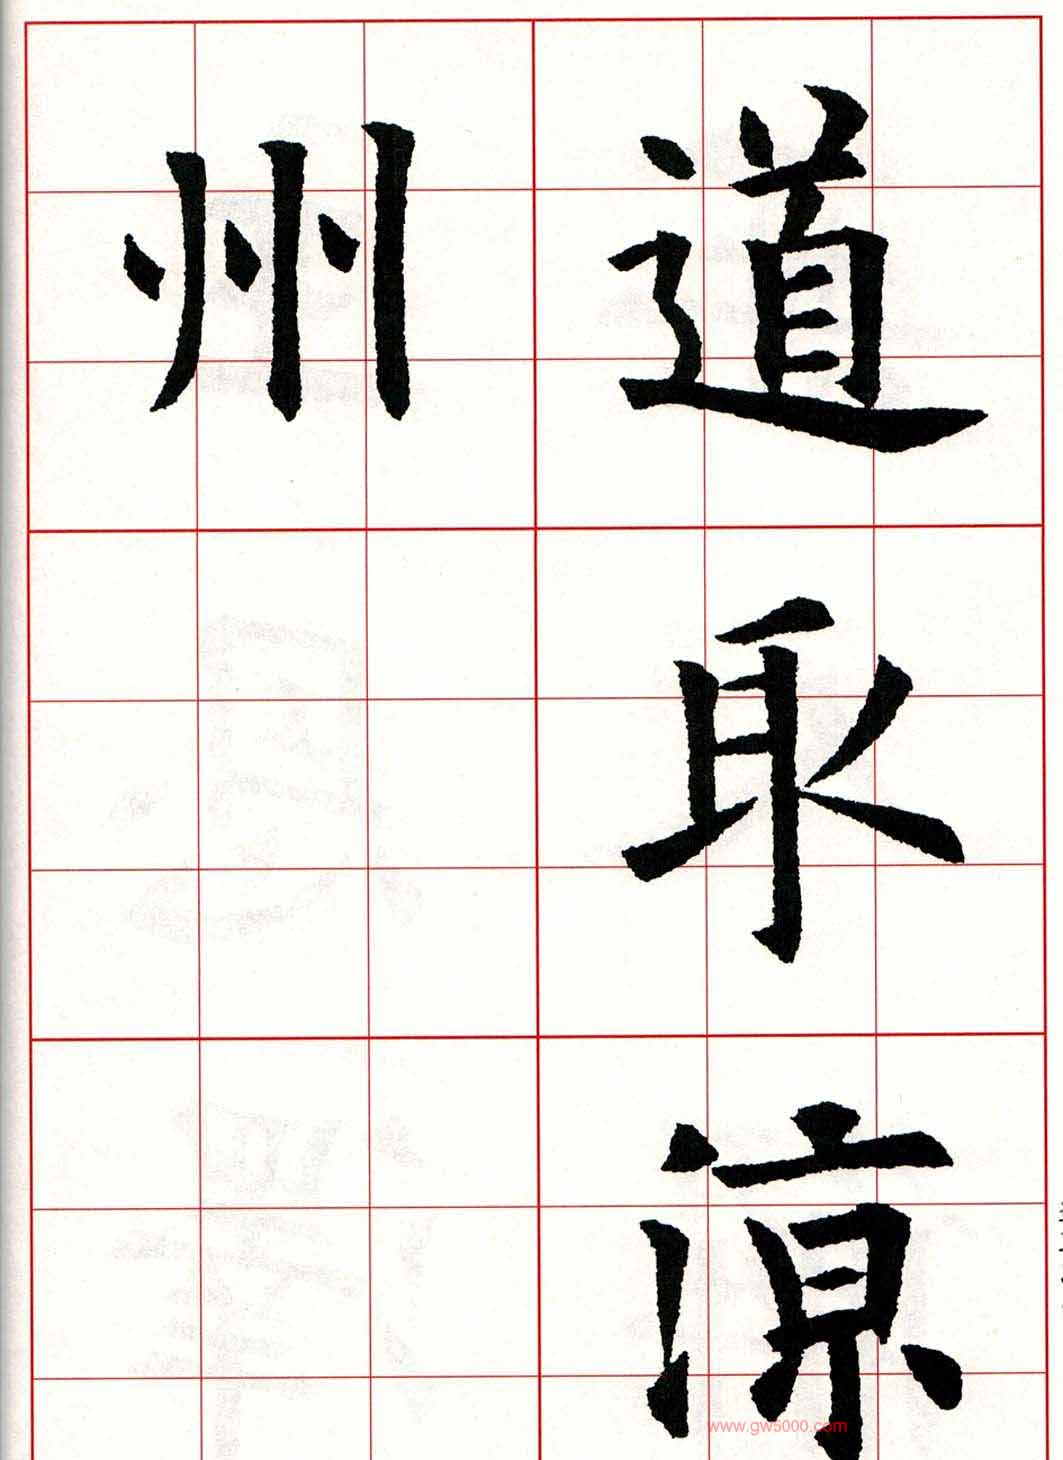 道取涼
州
www.gw5000.com